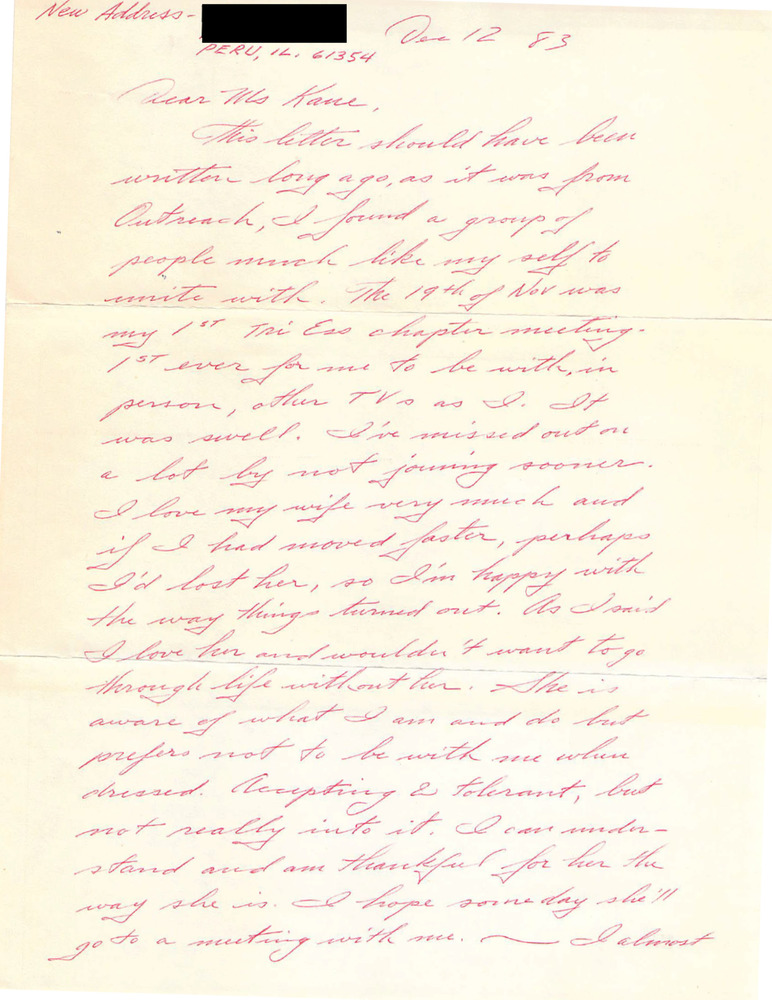 New Address-
PERU, IL. 61354
Dec 12 83
Dear Ms Kane,
This letter should have been
written long ago, as it was from
Outreach, I found a group of
people much like my self to
unite with. The 19th of Nov was
my 1ST Tri Ess chapter meeting.
1ST ever for me to be with, in
person, other TVs as I. It
was swell. I've missed out on
a lot by not joining sooner.
I love my wife very much and
if I had moved faster, perhaps
I'd lost her, so I'm happy with
the way things turned out. As I said
I love her and wouldn't want to go
through life without her. She is
aware of what I am and do but
prefers not to be with me when
dressed. Accepting & tolerant, but
not really into it. I can under-
stand and am thankful for her the
way she is. I hope some day she'll
go to a meeting with me. ~ I almost